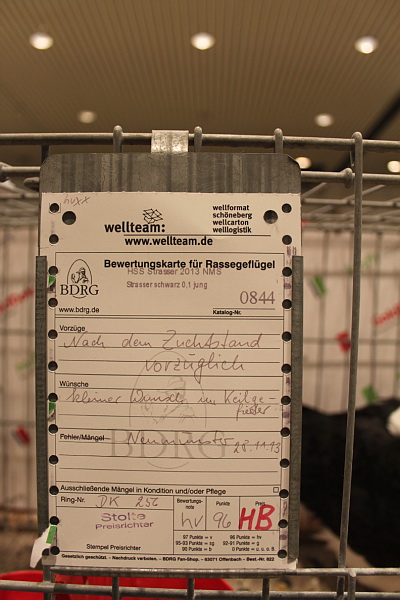 huxx
wellteam:
wellformat
schöneberg
wellcarton
welllogistik
www.wellteam.de
Bewertungskarte für Rassegeflügel
HSS Strasser 2013 NMS
Strasser schwarz 0,1 jung
BDRG
0844
www.bdrg.de
Katalog-Nr.
Vorzüge
Nach dem Zuchtstand
vorzüglich
Wünsche
kleiner Wunsch im Keilge-
fieder
Fehler/Mängel
Neumünster 28.11.13
BDRG
Ausschließende Mängel in Kondition und/oder Pflege
Ring-Nr. DK 256
Stolte
Preisrichter
Stempel Preisrichter
Bewertungs-
note
hv
Punkte
96
Preis
HB
97 Punkte = v
96 Punkte = hv
95-93 Punkte = sg
92-91 Punkte = g
90 Punkte = b
0 Punkte = u. o. o. B.
Gesetzlich geschützt. - Nachdruck verboten. - BDRG Fan-Shop. - 63071 Offenbach - Best.-Nr. 822